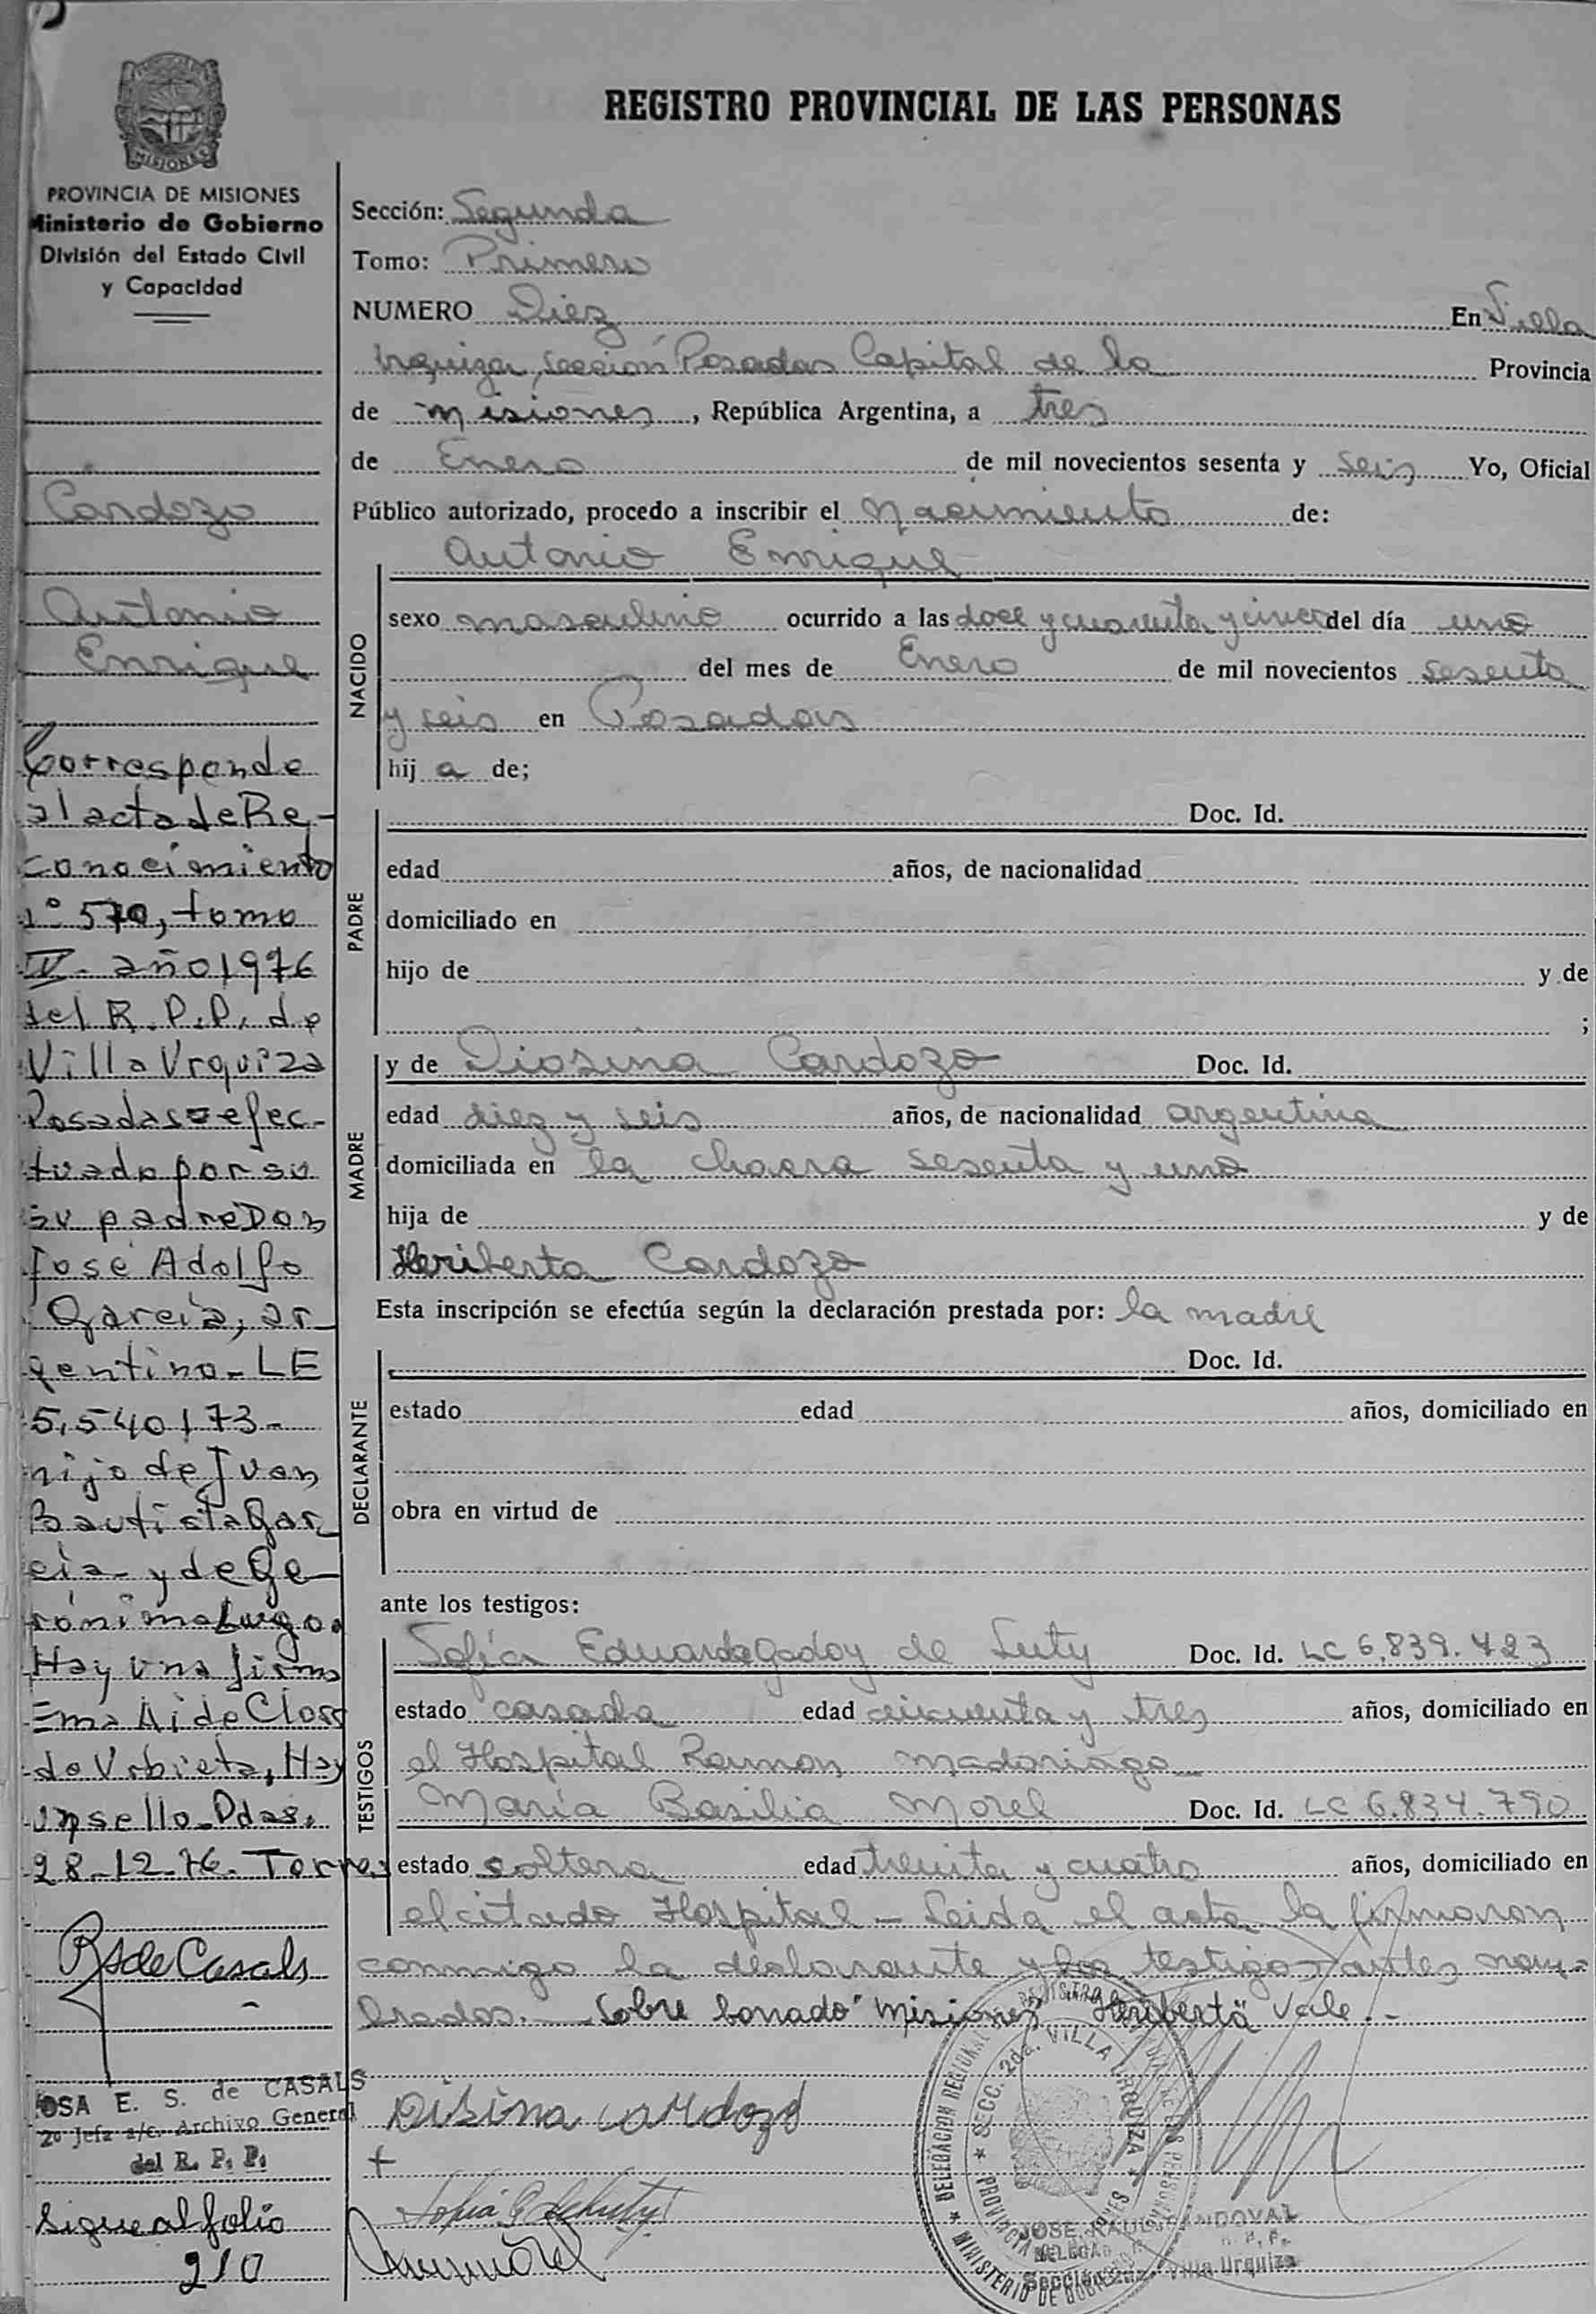 REGISTRO PROVINCIAL DE LAS PERSONAS
MISIONES
PROVINCIA DE MISIONES
Ministerio de Gobierno
División del Estado Civil
y Capacidad
Cardozo
Antonio
Enrique
Corresponde
al acta de Re-
conocimiento
n° 570, tomo
IV - año 1976
del R.P.P. de
Villa Urquiza
Posadas = efec-
tuado por su
su padre Don
José Adolfo
García, ar-
gentino - LE
5.540173 -
hijo de Juan
Bautista Gar-
cía - y de Ge-
rónima Lugo =
Hay una firma
Ema Aide Closs
de Urbieta, Hay
un sello - Pdas.
28-12-76. Torres
RSde Casals
OSA E. S. de CASALS
2º Jefa a/c. Archivo General
del R. P. P.
Sigue al folio
210
Sección: Segunda
Tomo: Primero
NUMERO Diez En Villa
Urquiza, sección Posadas Capital de la Provincia
de Misiones, República Argentina, a tres
de Enero de mil novecientos sesenta y seis Yo, Oficial
Público autorizado, procedo a inscribir el nacimiento de:
Antonio Enrique
NACIDO
sexo masculino ocurrido a las doce y cuarenta y cinco del día uno
del mes de Enero de mil novecientos sesenta
y seis en Posadas
hij a de;
PADRE
Doc. Id.
edad años, de nacionalidad
domiciliado en
hijo de y de
;
MADRE
y de Diosina Cardozo Doc. Id.
edad diez y seis años, de nacionalidad argentina
domiciliada en la chacra sesenta y uno
hija de y de
Heriberta Cardozo
Esta inscripción se efectúa según la declaración prestada por: la madre
DECLARANTE
Doc. Id.
estado edad años, domiciliado en
obra en virtud de
ante los testigos:
TESTIGOS
Sofía Eduarda Godoy de Luty Doc. Id. LC 6.839.423
estado casada edad cincuenta y tres años, domiciliado en
el Hospital Ramon Madariaga
María Basilia Morel Doc. Id. LC 6.834.790
estado soltera edad treinta y cuatro años, domiciliado en
el citado Hospital - Leida el acta la firmaron
conmigo la declarante y los testigos antes nom-
brados. - Sobre borrado "Misiones" "Heriberta" Vale. -
Disina Cardozo
+
Sofia G de Luty
JOSE RAUL SANDOVAL
Sección 2da. Villa Urquiza
DELEGACION REGIONAL
SECC. 2da. VILLA URQUIZA
MINISTERIO DE GOBIERNO